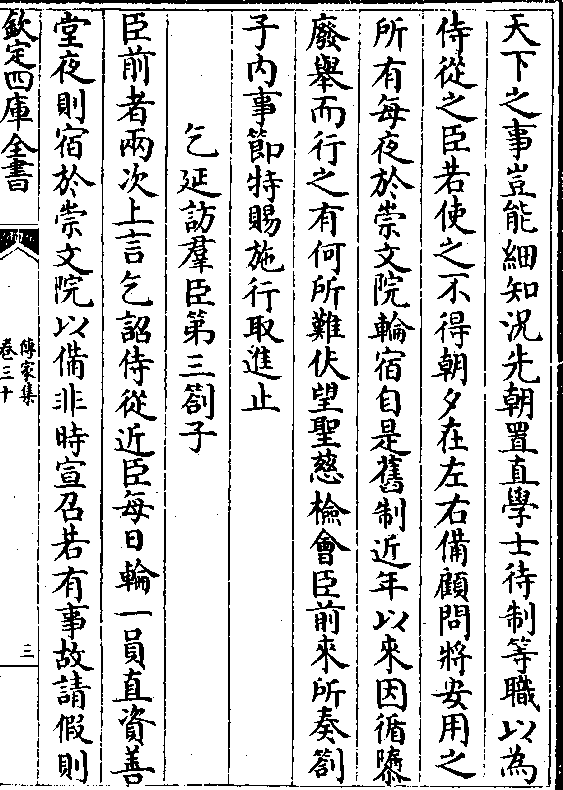 天下之事豈能細知況先朝置直學士待制等職以為
侍從之臣若使之不得朝夕在左右備顧問將安用之
所有每夜於崇文院輪宿自是舊制近年以來因循隳
廢舉而行之有何所難伏望聖慈檢會臣前來所奏劄
子內事節特賜施行取進止
乞延訪羣臣第三劄子
臣前者兩次上言乞詔侍從近臣每日輪一員直資善
堂夜則宿於崇文院以備非時宣召若有事故請假則
欽定四庫全書
傳家集
卷三十
三